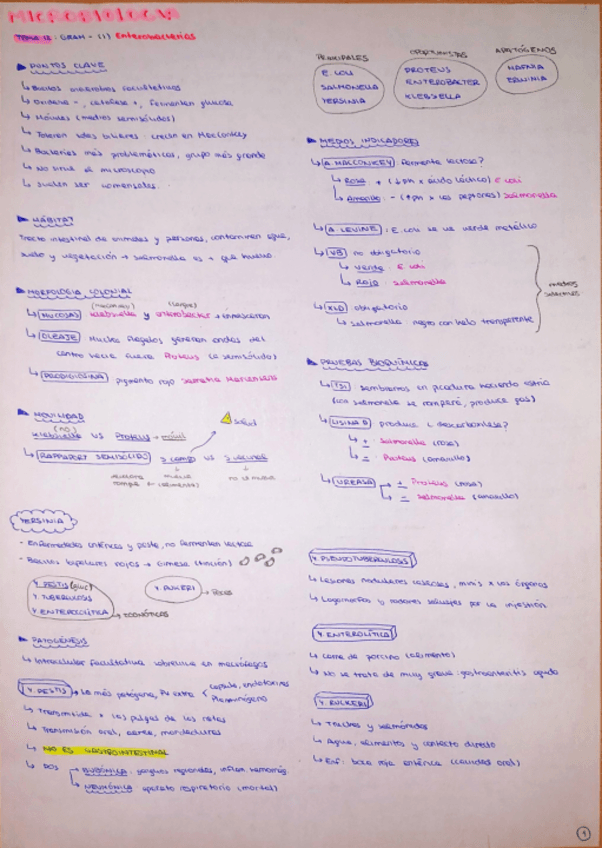 MICROBIOLOGÍA
TEMA 12: GRAM - (1) Enterobacterias
PUNTOS CLAVE
Bacilos anaerobios facultativos
Oxidasa -, catalasa +, fermentan glucosa
Móviles (medios semisólidos)
Toleran sales biliares: crecen en MacConkey
Bacterias más problemáticas, grupo más grande
No sirve el microscopio
Suelen ser comensales
HÁBITAT
Tracto intestinal de animales y personas, contaminan agua,
suelo y vegetación → salmonella es + que huevo.
MORFOLOGÍA COLONIAL
MUCOSAS klebsiella y enterobacter
OLEAJE Muchos flagelos generan ondas del
centro hacia fuera Proteus (e semisólido)
PRODIGIOSINA pigmento rojo Serratia Marcescens
MOVILIDAD
(NO)
Klebsiella vs Proteus → móvil
salud
RAPPAPORT SEMISÓLIDO
YERSINIA
- Enfermedades entéricas y peste, no fermentan lactosa
- Bacilos bipolares rojos → Giemsa (tinción)
Y. PESTIS
Y. TUBERCULOSIS
Y. ENTEROCOLÍTICA → ZOONÓTICAS
Y. RUKERI → Peces
PATOGÉNESIS
Intracelular facultativa sobrevive en macrófagos
Y. PESTIS La más patógena, Fv extra
cápsula, endotoxinas
Plasminógeno
Transmitida x las pulgas de las ratas
Transmisión oral, aérea, mordeduras
NO ES GASTROINTESTINAL
DOS
BUBÓNICA: ganglios regionales, inflam. hemorrág.
NEUMÓNICA aparato respiratorio (mortal)
PRINCIPALES
E. COLI
SALMONELLA
YERSINIA
OPORTUNISTAS
PROTEUS
ENTEROBACTER
KLEBSIELLA
APATÓGENOS
HAFNIA
ERWINIA
MEDIOS INDICADORES
A. MACCONKEY: Fermenta lactosa?
Rosa + (↓ph x ácido láctico) E coli
Amarillo: - (↑ph x las peptonas) Salmonella
A. LEVINE: E. coli se ve verde metálico
VB no obligatorio
Verde: E coli
Rojo: salmonella
XLD obligatorio
Salmonella: negro con halo transparente
medios
PRUEBAS BIOQUÍMICAS
TSI Sembramos en picadura haciendo estría
(con salmonella se romperá, produce gas)
LISINA D produce L descarboxilasa?
+ : Salmonella (rosa)
- : Proteus (amarillo)
UREASA
+ Proteus (rosa)
- Salmonella (amarillo)
Y. PSEUDOTUBERCULOSIS
Lesiones nodulares caseosas, en los órganos
Lagomorfos y roedores salvajes por la ingestión
Y. ENTEROLÍTICA
Carne de porcino (alimento)
No se trata de muy grave: gastroenteritis aguda
Y. RUCKERI
Truchas y salmónidos
Agua, alimentos y contacto directo
Enf: boca roja entérica (cavidad oral)
1